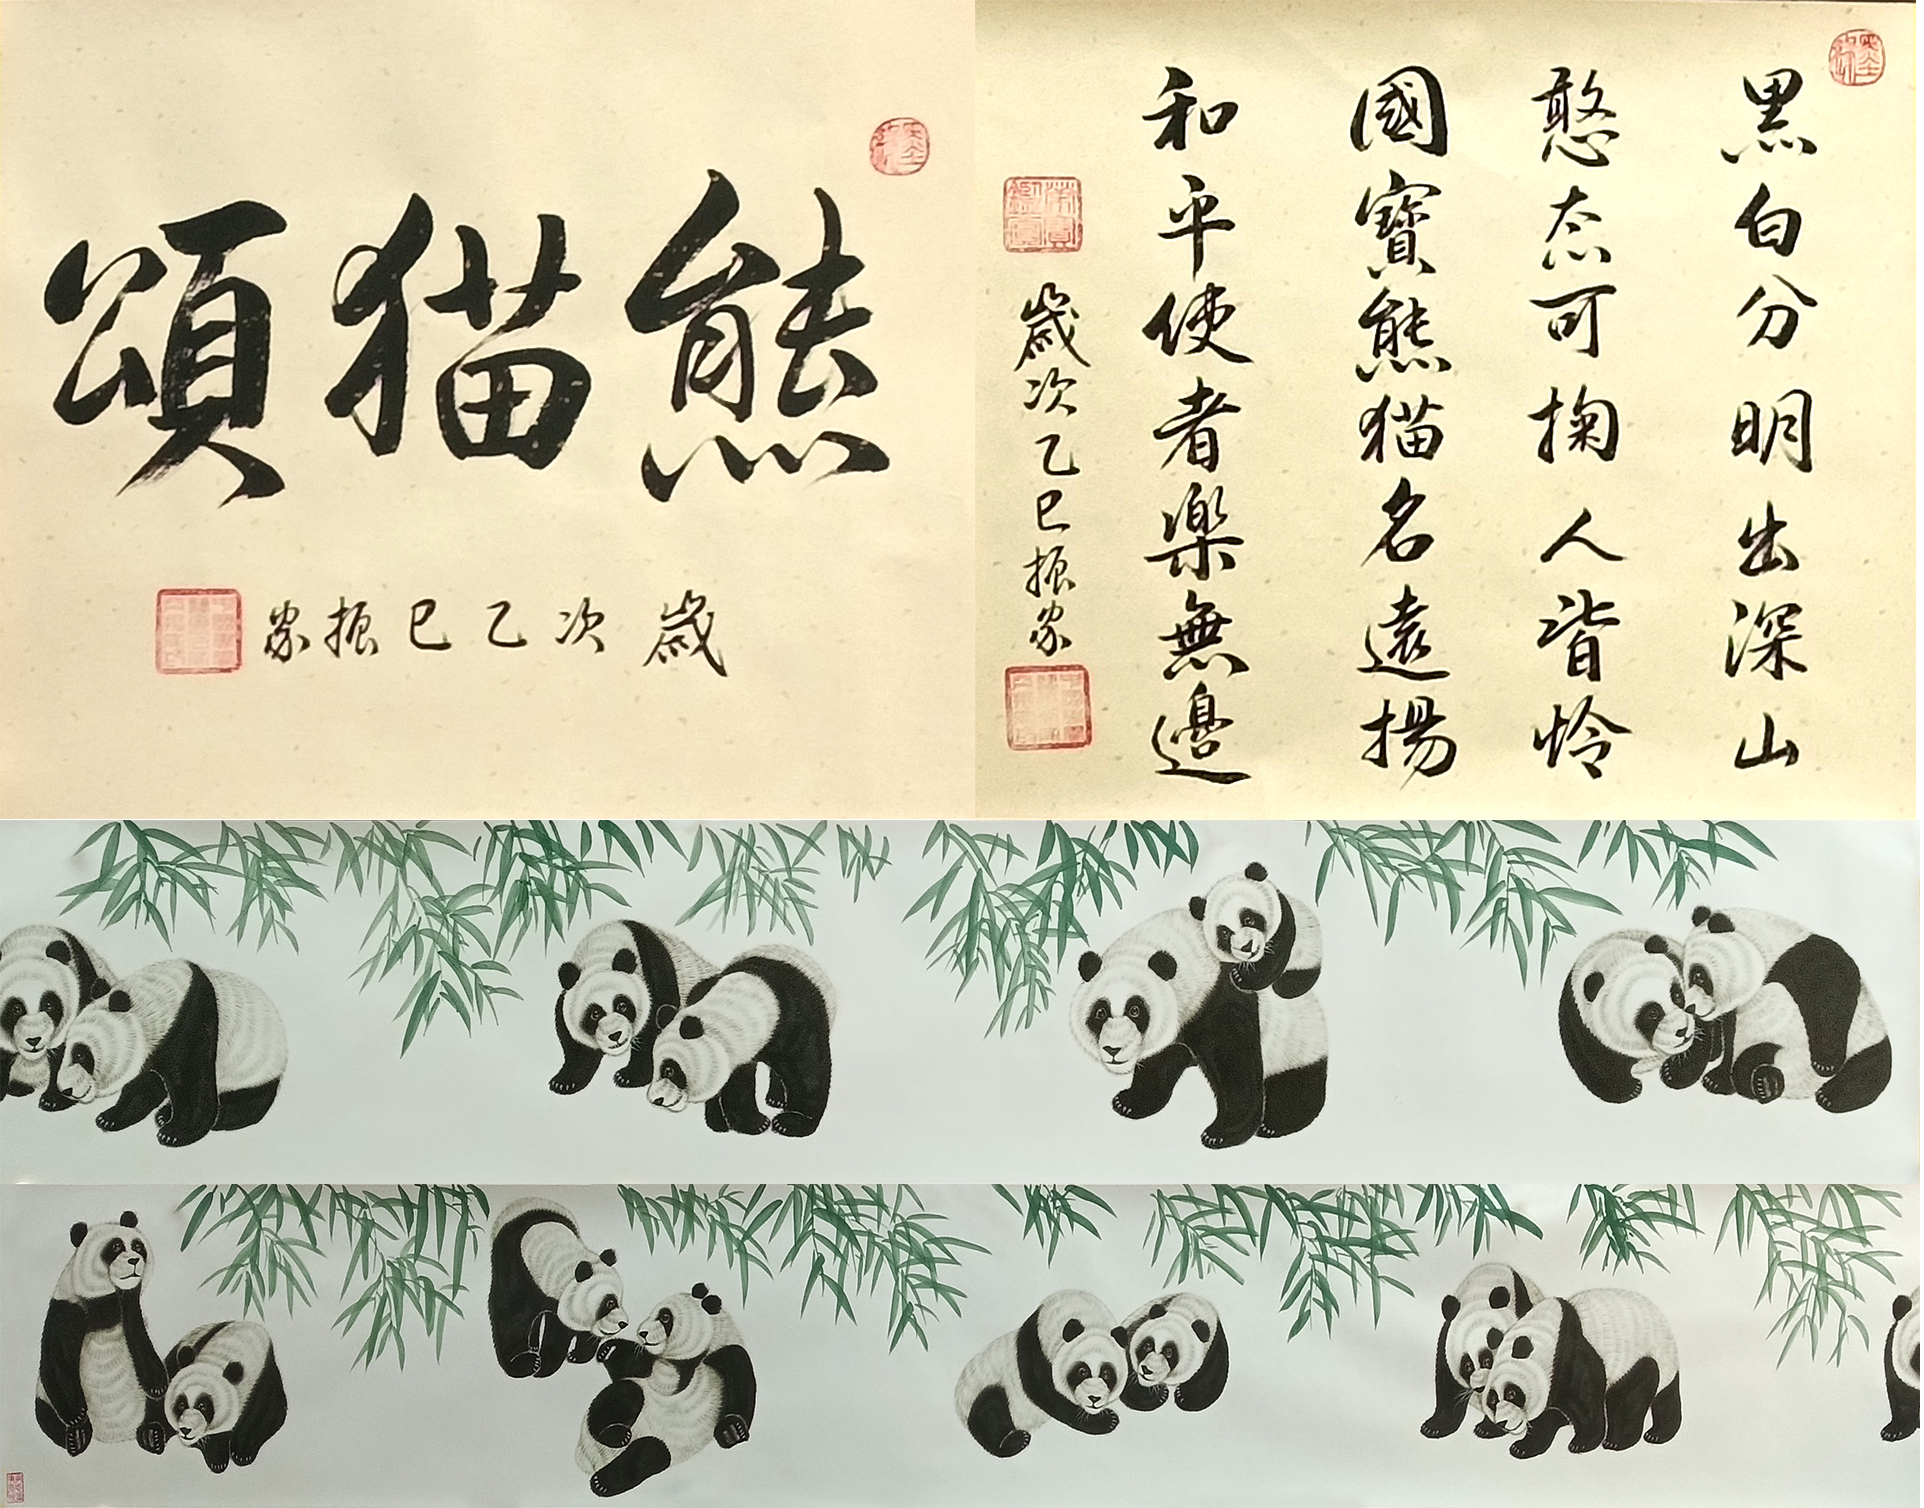 熊猫頌
歲次乙巳振家
黑白分明出深山
憨态可掬人皆怜
國寳熊猫名遠揚
和平使者楽無邊
歲次乙巳振家